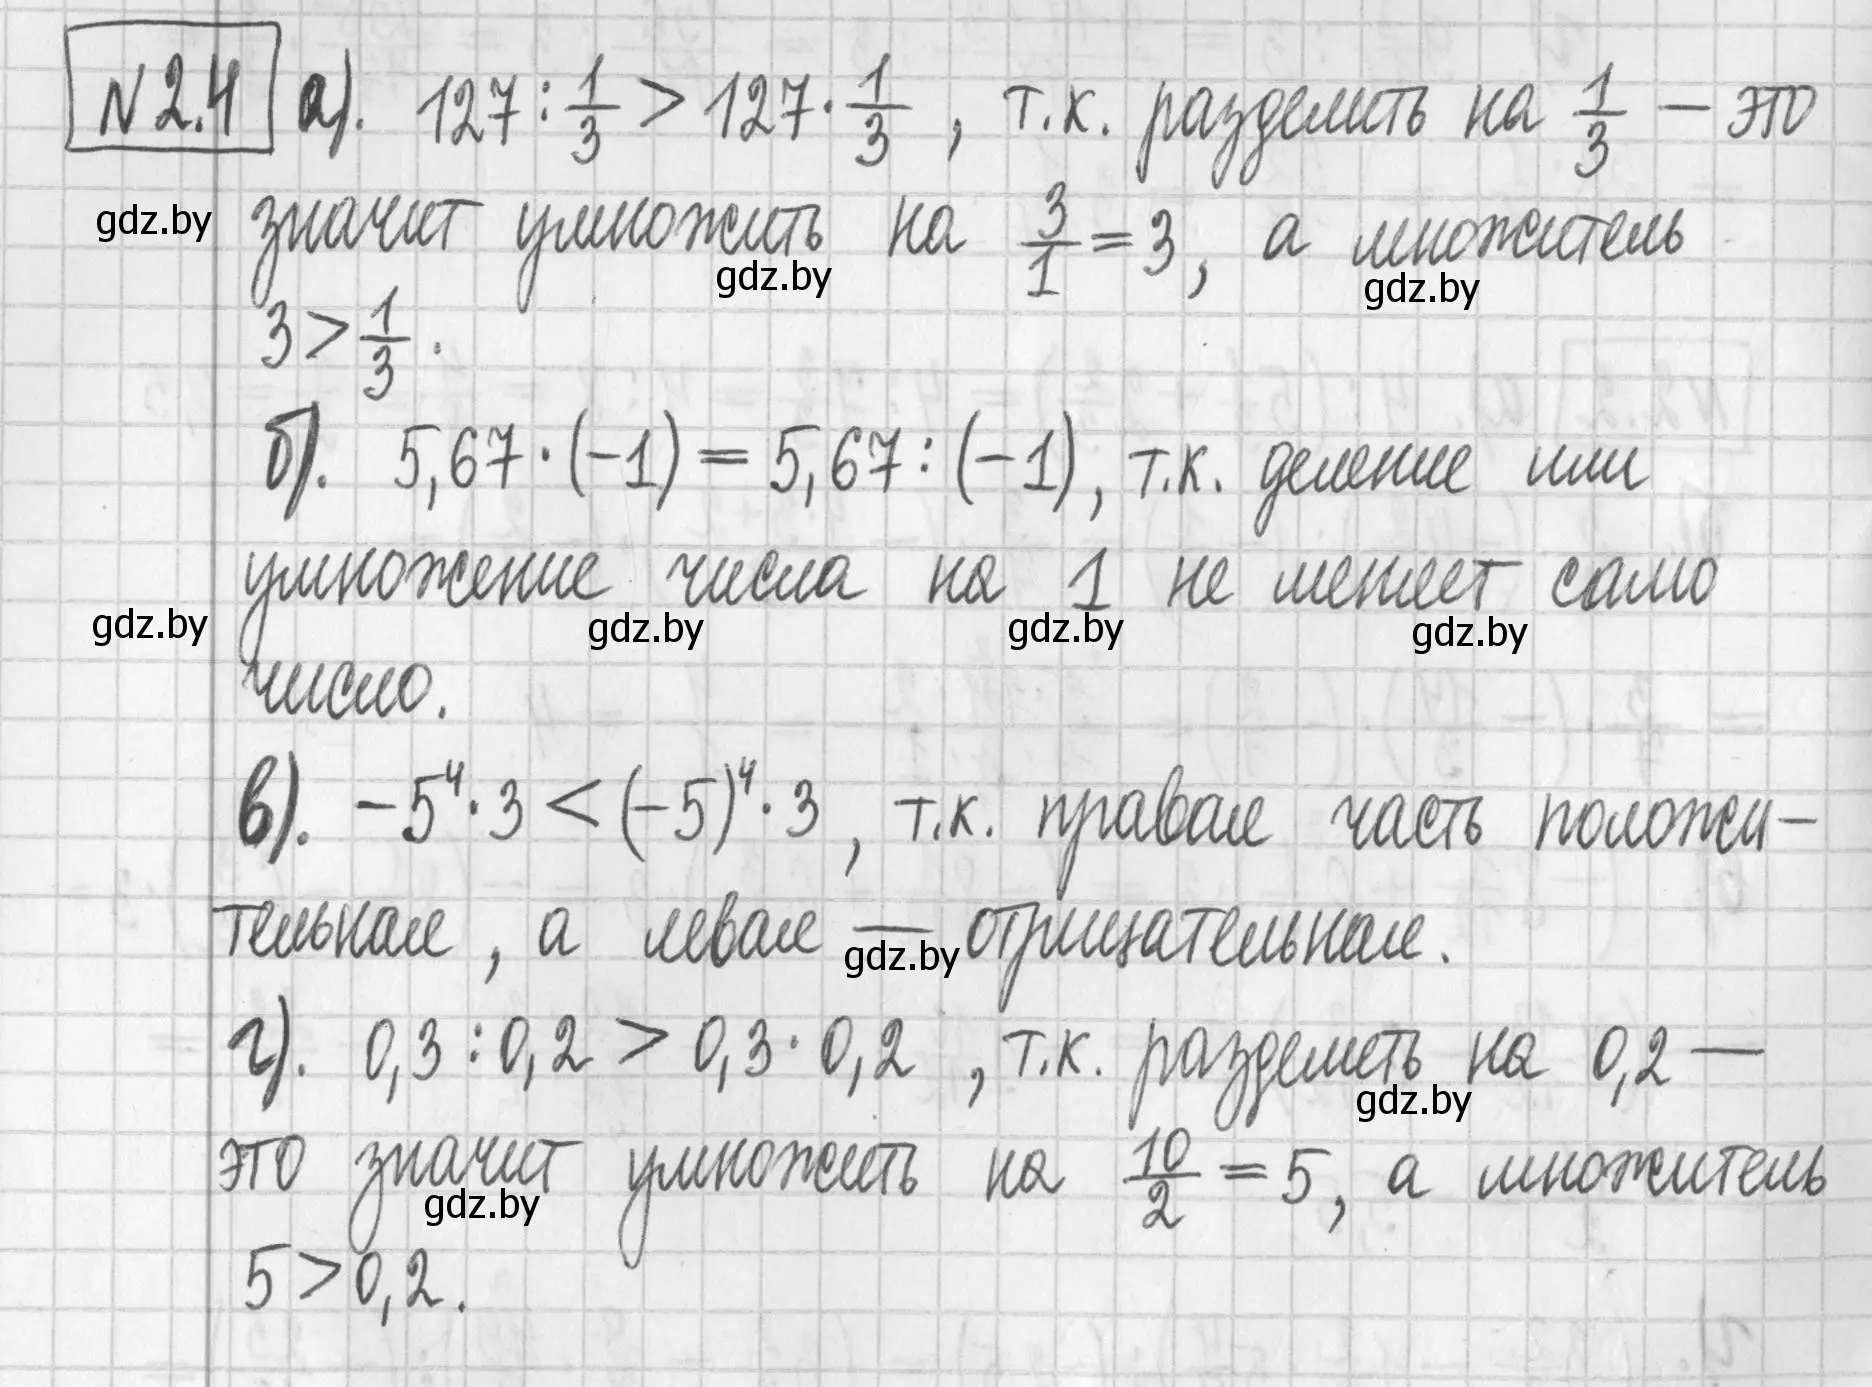 N2.4 а). 127 : 1/3 > 127 · 1/3 , т.к. разделить на 1/3 — это
значит умножить на 3/1 = 3, а множитель
gdz.by
gdz.by
gdz.by
3 > 1/3 .
б). 5,67 · (−1) = 5,67 : (−1), т.к. деление или
умножение числа на 1 не меняет само
gdz.by
gdz.by
gdz.by
gdz.by
число.
в). −5⁴ · 3 < (−5)⁴ · 3 , т.к. правая часть положи-
тельная , а левая — отрицательная.
gdz.by
г). 0,3 : 0,2 > 0,3 · 0,2 , т.к. разделить на 0,2 —
gdz.by
это значит умножить на 10/2 = 5, а множитель
gdz.by
5 > 0,2 .